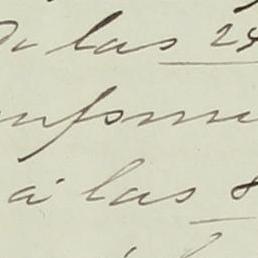 De las 24
nform
á las 8